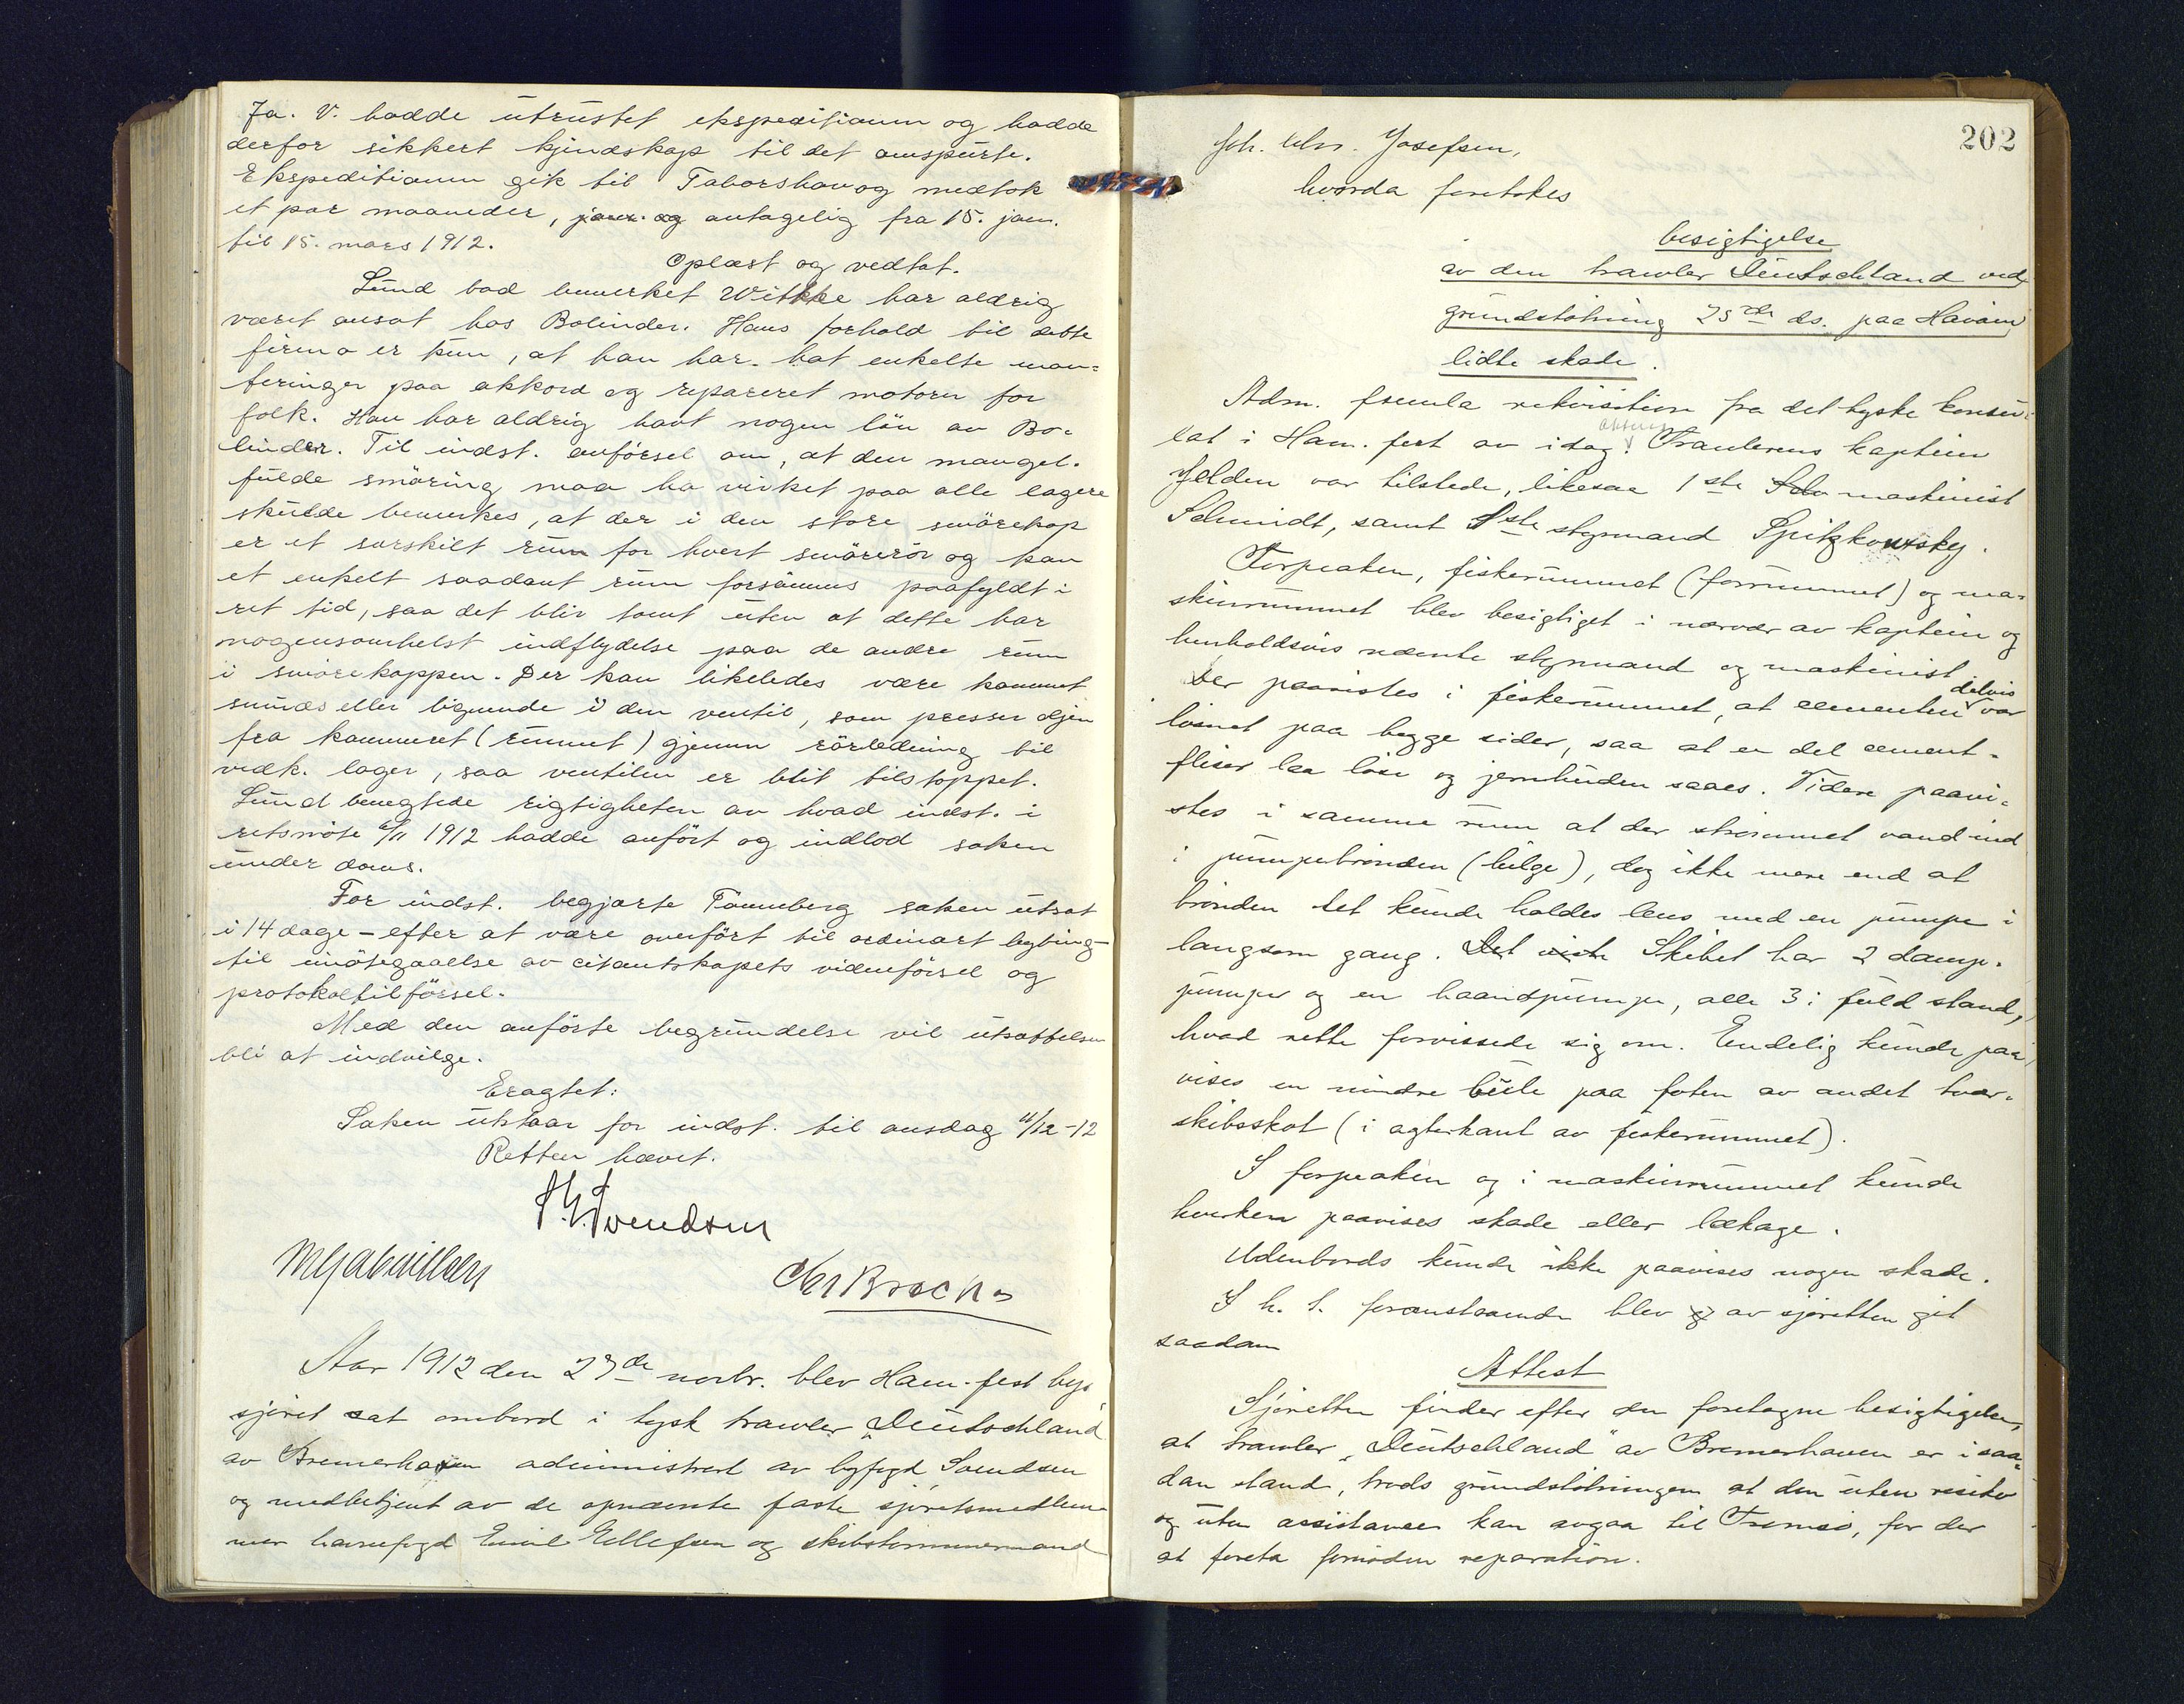 Ja. V. hadde utrustet ekspeditionen og hadde
derfor sikkert kjendskap til det omspurte.
Ekspeditionen gik til Taborshav og medtok
et par maaneder, jan. og antagelig fra 15. jan.
til 15. mars 1912.
Oplæst og vedtat.
Lund bad bemerket Witkke har aldrig
været ansat hos Bolinder. Hans forhold til dette
firma er kun, at han har hat enkelte mon-
teringer paa akkord og reparert motorer for
folk. Han har aldrig havt nogen lön av Bo-
linder. Til indst. anförsel om, at den mangel-
fulde smöring maa ha virket paa alle lagere
skulde bemerkes, at der i den store smörekop
er et særskilt rum for hvert smörerör og kan
et enkelt saadant rum forsömmes paafyldt i
ret tid, saa det blir tomt uten at dette har
nogensomhelst indflydelse paa de andre rum
i smörekoppen. Der kan likeledes være kommet
smuds eller lignende i den ventil, som presser oljen
fra kammeret (rummet) gjennem rörledning til
vedk. lager, saa ventilen er blit tilstoppet.
Lund benegtede rigtigheten av hvad indst. i
retsmöte 6/11 1912 hadde anfört og indlod saken
under doms.
For indst. begjærte Tönneberg saken utsat
i 14 dage - efter at være overfört til ordinært bything -
til imötegaaelse av citantskapets videnförsel og
protokoltilförsel.
Med den anförte begrundelse vil utsættelsen
bli at indvilge.
Eragtet:
Saken utstaar for indst. til onsdag 11/12-12
Retten hævet.
Svendsen
Chr Broch
Aar 1912 den 27de novbr. blev Ham.fest bys
sjöret sat ombord i tysk trawler "Deutschland
av Bremerhaven administrert av byfogd Svendsen
og medbetjent av de opnævnte faste sjöretsmedlem-
mer havnefogd Emil Ellefsen og skibstömmermand
202
Joh. Josefsen,
hvorda foretokes
besigtigelse
av den trawler Deutschland ved
grundstötning 25de ds. paa Havöen
lidte skade.
Adm. fremla rekvisition fra det tyske konsu-
lat i Ham.fest av idag. Traulerens kaptein
Jelden var tilstede, likesaa 1ste maskinist
Schmidt, samt 1ste styrmand Spitzkowsky.
Forpeaken, fiskerummet (forrummet) og ma-
skinrummet blev besigtiget i nærvær av kaptein og
henholdsvis nævnte styrmand og maskinist
Der paavistes i fiskerummet, at cementen delvis var
lösnet paa begge sider, saa at en del cement-
fliser laa löse og jernhuden saaes. Videre paavi-
stes i samme rum at der strömmet vand ind
i pumpebrönden (bilge), dog ikke mere end at
brönden let kunde holdes læns med en pumpe i
langsom gang. Det viste Skibet har 2 damp-
pumper og en haandpumpe, alle 3 i fuld stand,
hvad rette forvissede sig om. Endelig kunde paa-
vises en mindre bule paa foten av andet tvær-
skibsskot (i agterkant av fiskerummet).
I forpeaken og i maskinrummet kunde
hverken paavises skade eller lækage.
Udenbords kunde ikke paavises nogen skade.
I h. t. foranstaaende blev og av sjöretten git
saadan
Attest
Sjöretten finder efter den foretagne besigtigelse,
at trawler "Deutschland" av Bremerhaven er i saa-
dan stand, trods grundstötningen at den uten risiko
og uten assistance kan avgaa til Tromsö, for der
at foreta fornöden reparation.